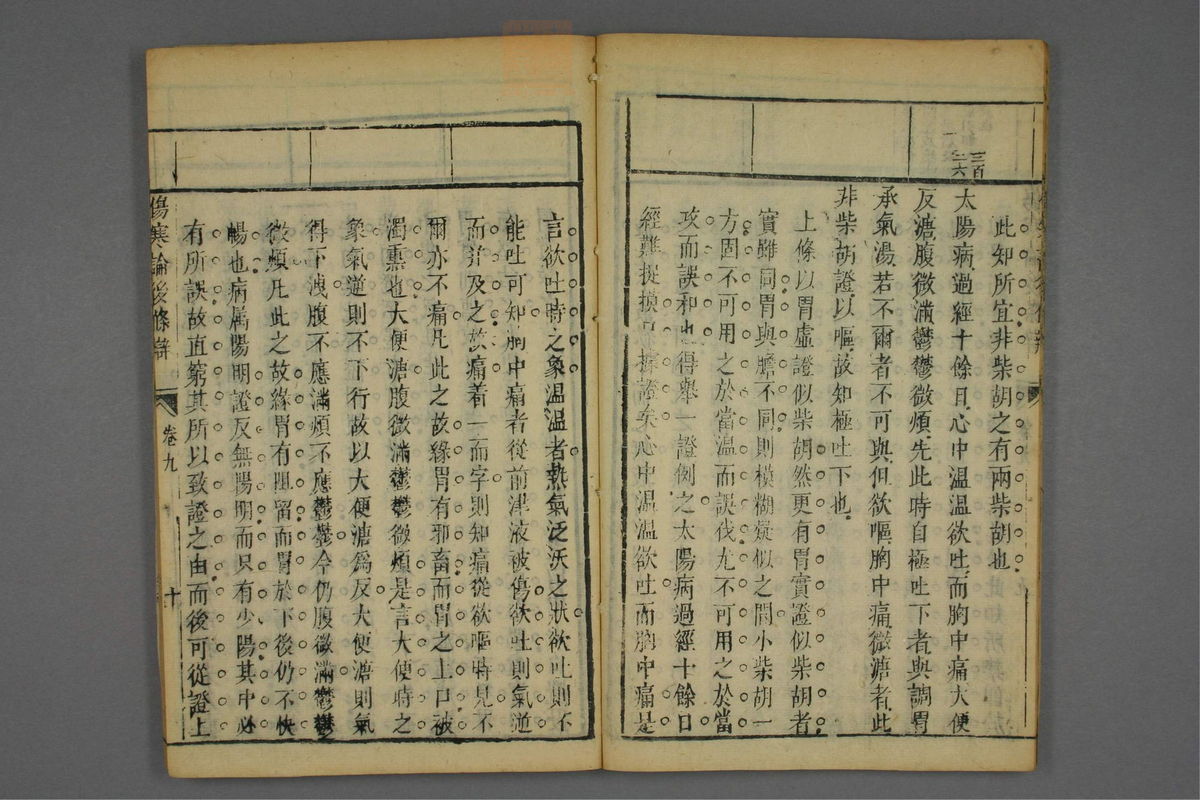 三百二六
一
此知所宜非柴胡之有兩柴胡也
太陽病過經十餘日心中温温欲吐而胸中痛大便
反溏腹微滿鬱鬱微煩先此時自極吐下者與調胃
承氣湯若不爾者不可與但欲嘔胸中痛微溏者此
非柴胡證以嘔故知極吐下也
上條以胃虛證似柴胡然更有胃實證似柴胡者
實雖同胃與膽不同則模糊疑似之間小柴胡一
方固不可用之於當温而誤伐尤不可用之於當
攻而誤和也得舉一證例之太陽病過經十餘日
經難捉摸據證矣心中温温欲吐而胸中痛是
言欲吐時之象温温者熱氣泛沃之狀欲吐則不
能吐可知胸中痛者從前津液被傷欲吐則氣逆
而并及之故痛着一而字則知痛從欲嘔時見不
爾亦不痛凡此之故緣胃有邪畜而胃之上口被
濁熏也大便溏腹微滿鬱鬱微煩是言大便時之
象氣逆則不下行故以大便溏爲反大便溏則氣
得下洩腹不應滿煩不應鬱鬱今仍腹微滿鬱鬱
微煩凡此之故緣胃有阻留而胃於下後仍不快
暢也病屬陽明證反無陽明而只有少陽其中必
有所誤故直窮其所以致證之由而後可從證上
傷寒論後條辨
卷九
十